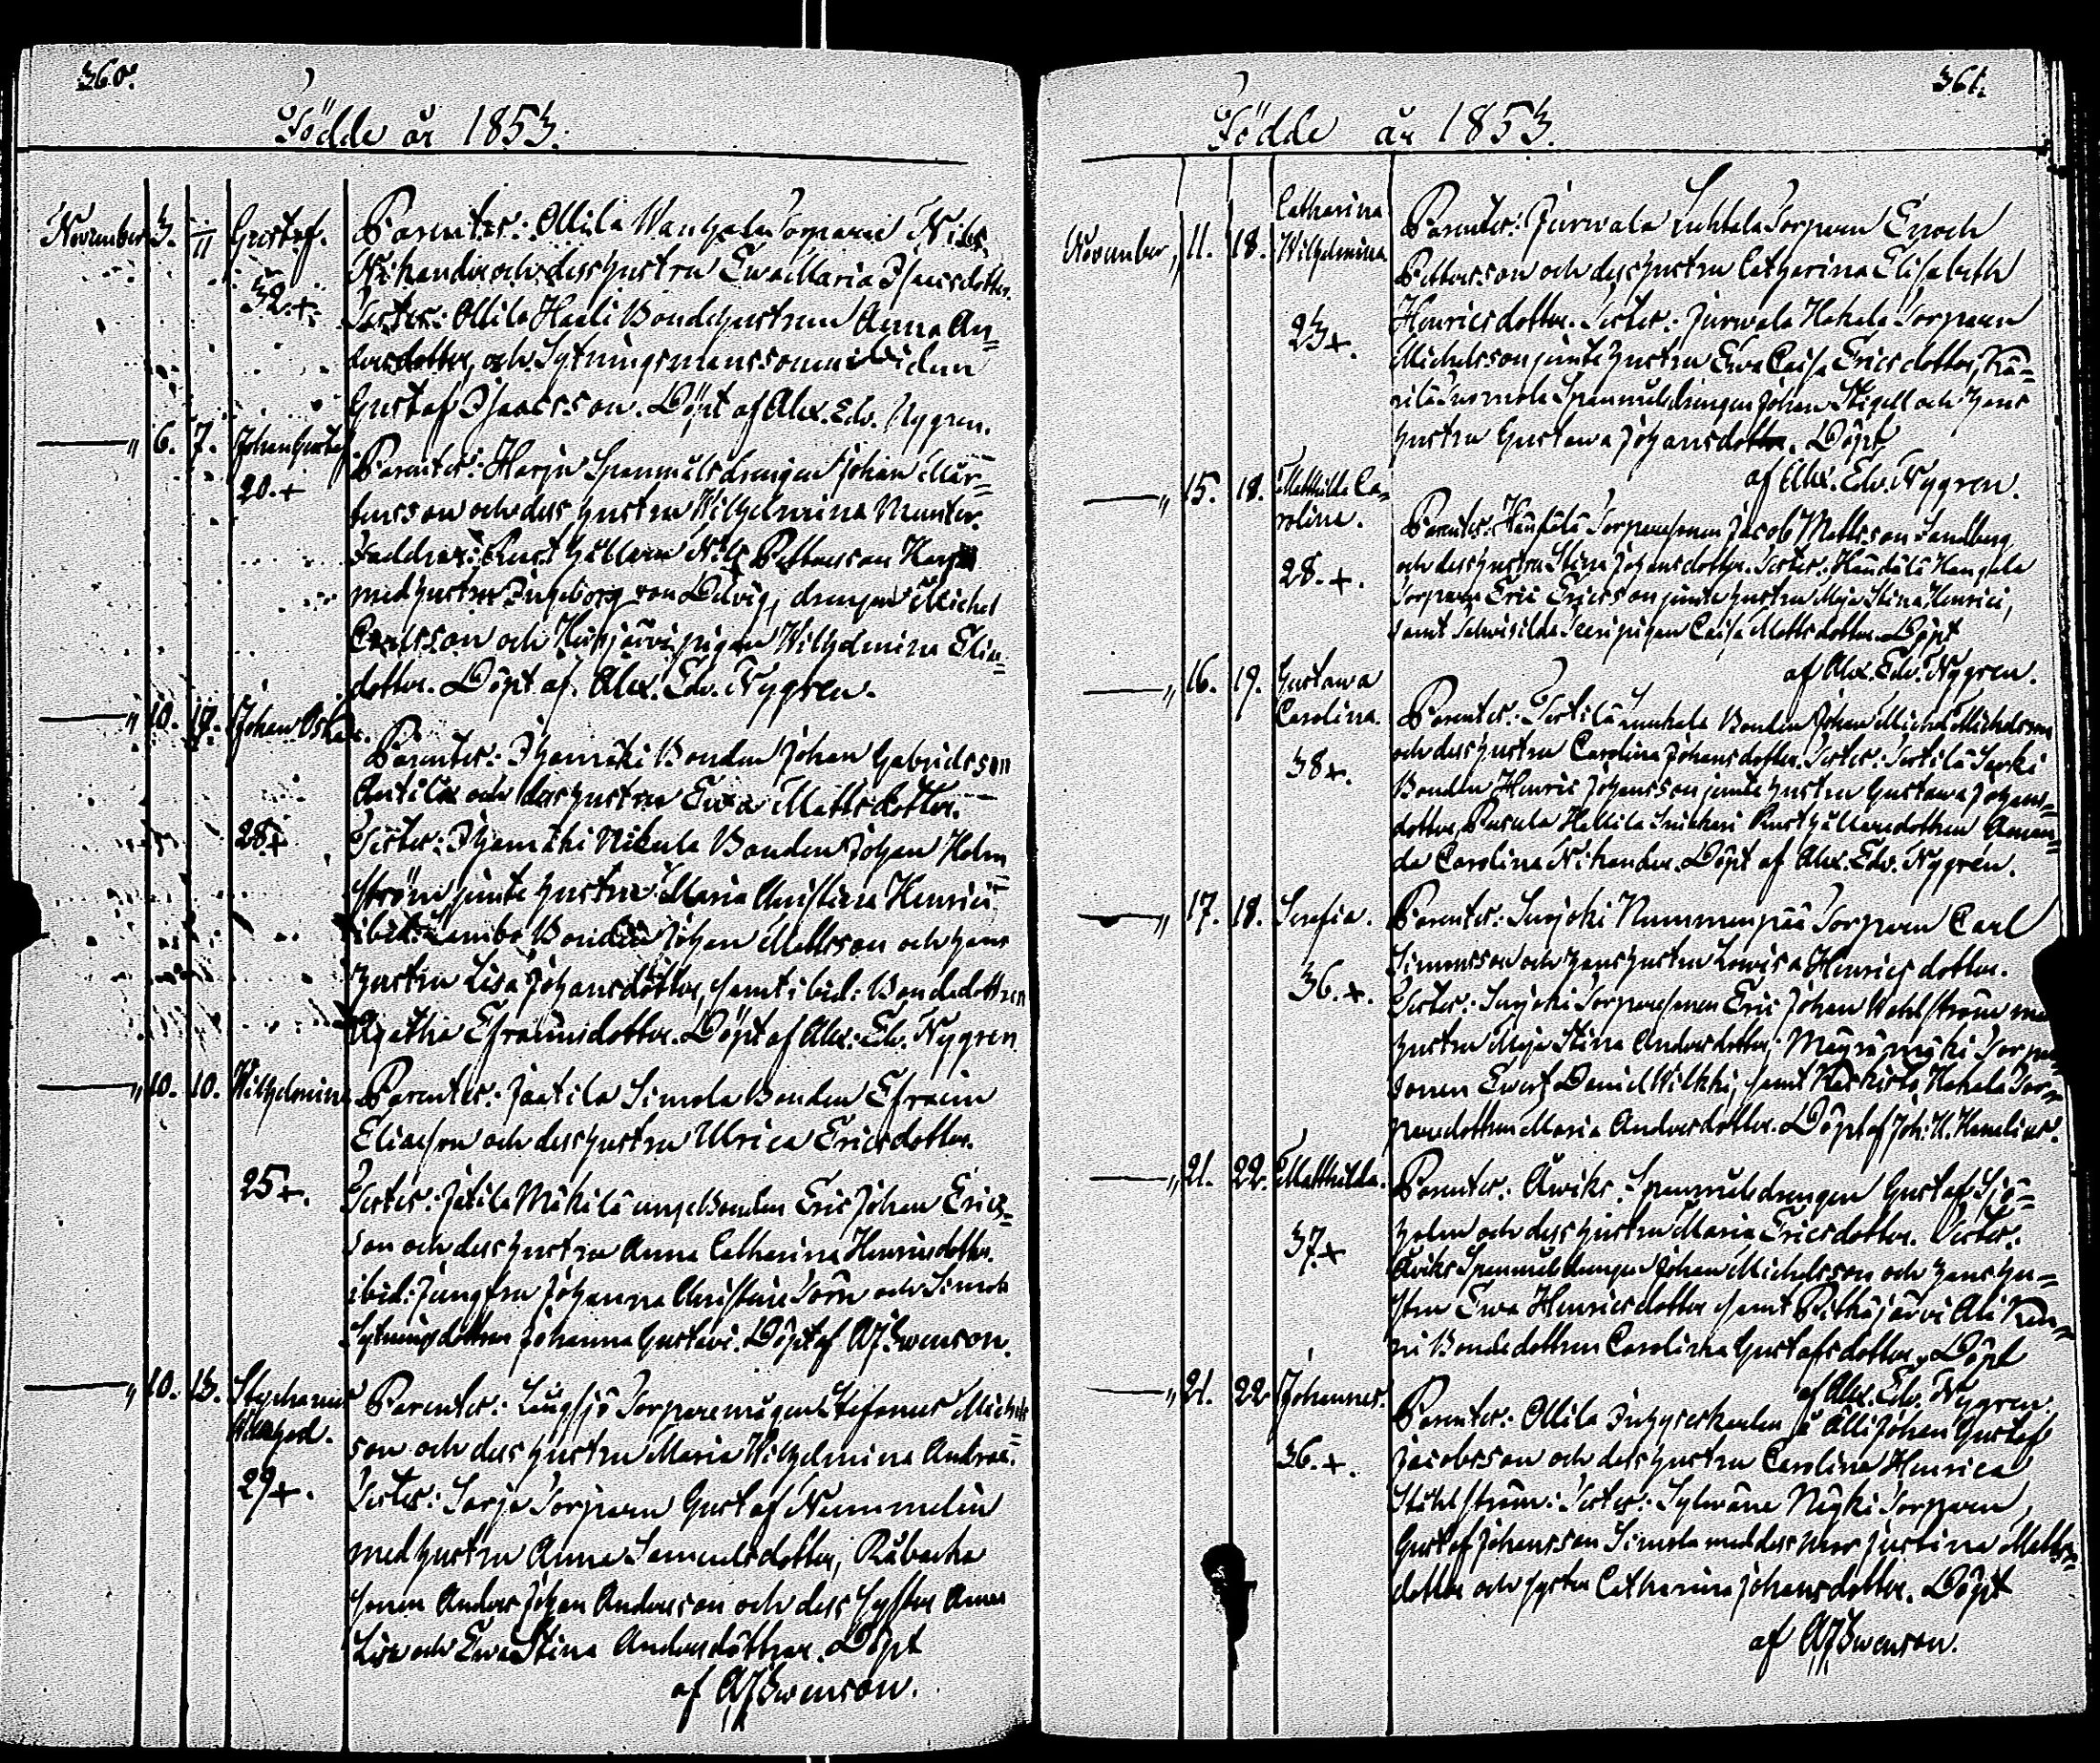 360.
Födde år 1853.
November 3. 11 Gustaf. Parenter: Ollila Torparen Nils
32.+. Nikander och dess hustru Ewa Maria Isacsdotter.
Testes: Ollila Haali Bondehustrun Anna An=
dersdotter, och Sytningsmanssonen
Gustaf Isacsson. Döpt af Alex. Edv. Nygren.
" 6. 7. Johan Gustaf Parenter: Harju Spannmålsdrengen Johan Mår=
20.+ tensson och dess hustru Wilhelmina Munter.
Faddrar: Rusthållaren Nils Pettersson Harju
med hustru Ingeborg von Delvig, drengen Michel
Carlsson och pigan Wilhelmina Elia=
dotter. Döpt af Alex. Edv. Nygren.
" 10. 17. Johan Oskar. Parenter: Ihamäki Bonden Johan Gabrielsson
Antila och dess hustru Ewa Mattsdotter.
28+ Testes: Ihamäki Nikula Bonden Johan Holm
ström jemte hustru Maria Christina Henrici
ibid: Bonden Johan Mattsson och hans
hustru Lisa Johansdotter, samt ibid: Bondedottren
Agatha Efraimsdotter. Döpt af Alex. Edv. Nygren
" 10. 10. Wilhelmina Parenter: Jaatila Simola Bonden Efraim
Eliasson och dess hustru Ulrica Ericsdotter.
25+. Testes: Jatila Mäkilä unge Bonden Eric Johan Erics=
son och dess hustru Anna Catharina Henricsdotter.
ibid: Jungfru Johanna Christina Törn och Simola
Sytningsdottren Johanna Gustavi. Döpt af AJSwenson.
" 10. 13. Stephanus Parenter: Långsjö Torparemågen Stefanus Michels
son och dess hustru Maria Wilhelmina Andreae.
29+. Testes: Sarja Torparen Gustaf Nummelin
med hustru Anna Samuelsdotter, Råbacka
sonen Anders Johan Andersson och dess syster Anna
Lisa och Ewa Stina Andersdöttrar. Döpt
af AJSwenson.
361.
Födde år 1853.
Catharina
November, 11. 18. Wilhelmina. Parenter: Jurwala Torparen Enoch
Pettersson och dess hustru Catharina Elisabeth
23+. Henricsdotter. Testes: Jurwala Hakala Torparen
Michelsson jemte hustru Ewa Caisa Ericsdotter, Kä=
rilä Spannmålsdrengen Johan Stigell och hans
hustru Gustawa Johansdotter. Döpt
af Alex. Edv. Nygren.
" 15. 18. Matthilda Ca=
rolina. Parenter: Torparesonen Jacob Mattsson Sandberg
28.+. och dess hustru Stina Johansdotter. Testes: Kangala
Torparen Eric Ericsson jemte hustru Maja Stina Henrici,
samt pigan Caisa Mattsdotter. Döpt
af Alex. Edv. Nygren.
" 16. 19. Gustawa
Carolina. Parenter: Tortilä Bonden Johan Michel Michelsson
och dess hustru Carolina Johansdotter. Testes: Tortilä Sarki
38+. Bonden Henric Johansson jemte hustru Gustawa Johans=
dotter, Pusula Hellilä Rusthållaredottren Aman=
da Carolina Nikander. Döpt af Alex. Edv. Nygren.
" 17. 18. Serafia. Parenter: Suojoki Nummenpää Torparen Carl
Simonsson och hans hustru Lowisa Henrics dotter.
36.+. Testes: Suojoki Torparesonen Eric Johan Wahlström med
hustru Maja Stina Andersdotter,
sonen Ewert Daniel Wilkki, samt Hakala Tor=
paredottren Maria Andersdotter. Döpt af Joh. H. Hanelius.
" 21. 22. Matthilda. Parenter: Äwiks Spannmålsdrengen Gustaf Sjö=
holm och dess hustru Maria Ericsdotter. Testes:
37.+ Äwiks Spannmålsdrengen Johan Michelsson och hans hu=
stru Ewa Henricsdotter samt Pitkäjärwi Ali
Bondedottren Carolina Gustafsdotter. Döpt
af Alex. Edv. Nygren.
" 21. 22 Johannes. Parenter: Ollila Inhyseskarlen på Alli Johan Gustaf
36.+. Jacobsson och dess hustru Carolina Henrica
Ståhlström. Testes: Torparen
Gustaf Johansson Simola med dess mor Justina Matts=
dotter och syster Catharina Johansdotter. Döpt
af AJSwenson.